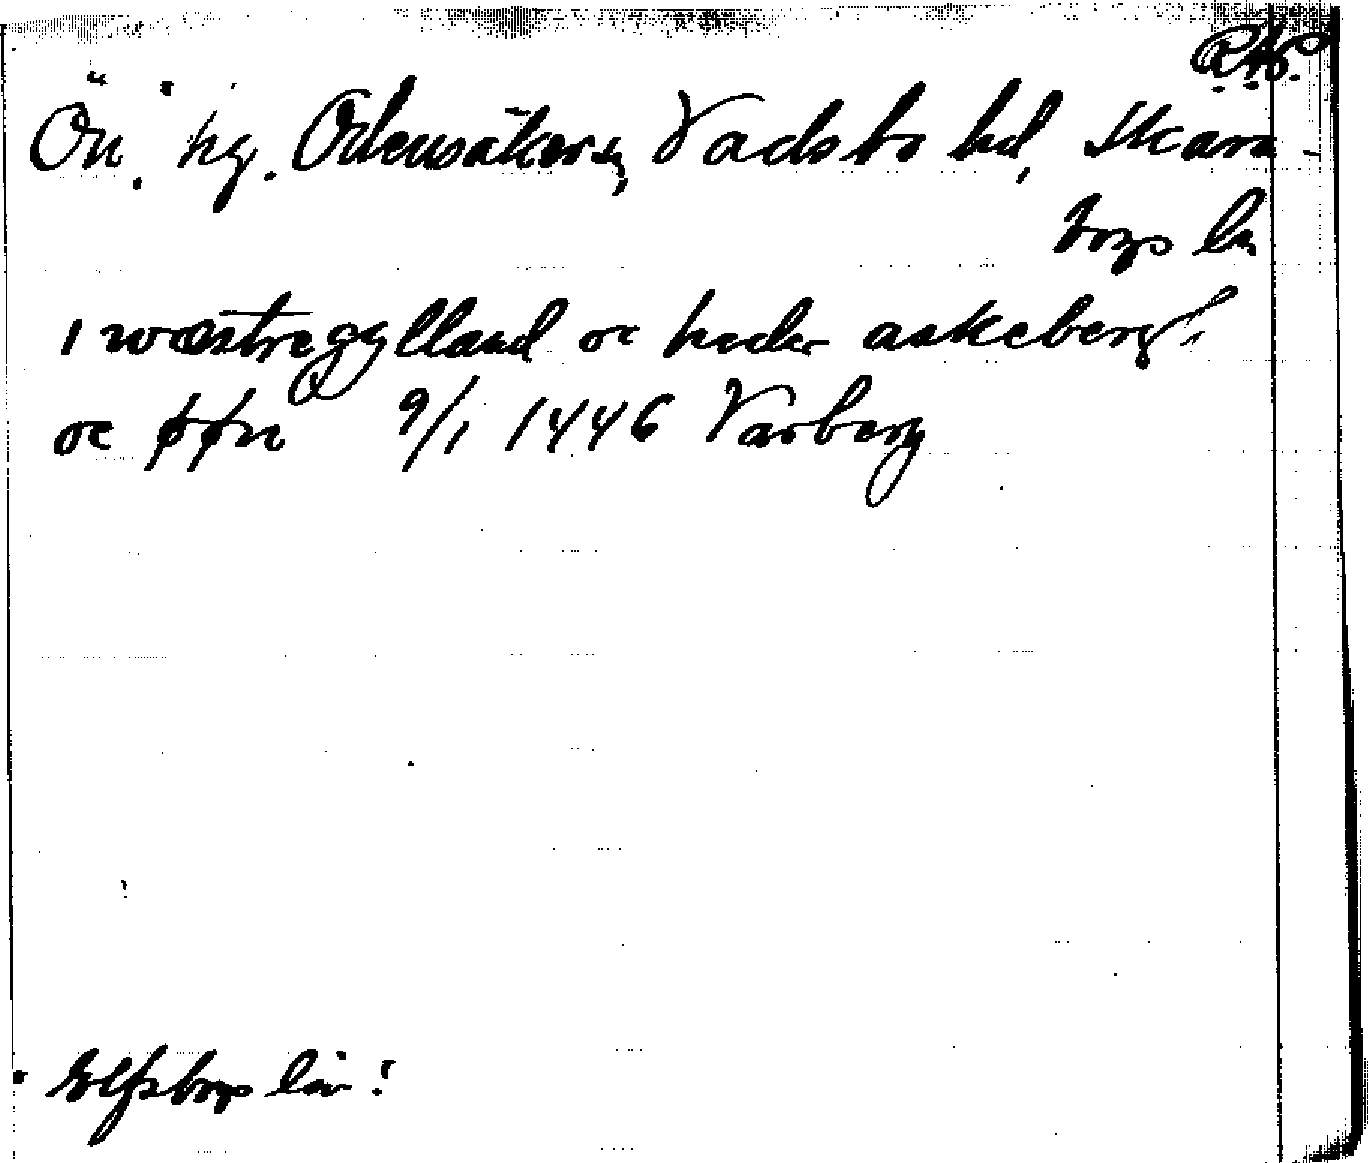 R.A.P.
Ön. hg. Odensåkers sn, Vadsbo hd, Skara-
borgs län
i wæstregylland oc heder askeberg
oc øøn 9/1 1446 Varberg
Elfsborgs län!